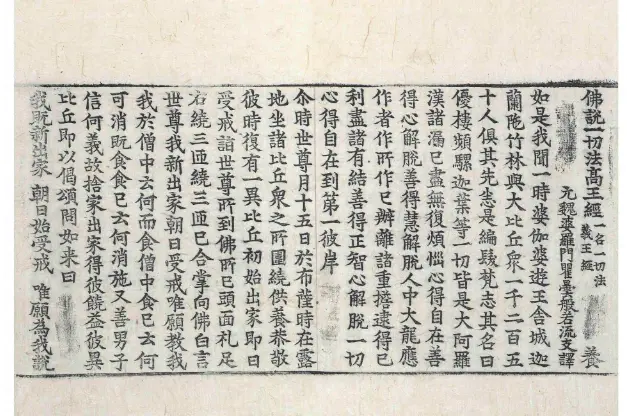 佛說一切法高王經 一名一切法義王經 養
元魏婆羅門瞿曇般若流支譯
如是我聞一時婆伽婆遊王舍城迦
蘭陁竹林與大比丘衆一千二百五
十人俱其先悉是編髮梵志其名曰
優樓頻騾迦葉等一切皆是大阿羅
漢諸漏已盡無復煩惱心得自在善
得心解脫善得慧解脫人中大龍應
作者作所作已辦離諸重擔逮得已
利盡諸有結善得正智心解脫一切
心得自在到第一彼岸
尒時世尊月十五日於布薩時在露
地坐諸比丘衆之所圍繞供養恭敬
彼時復有一異比丘初始出家即日
受戒詣世尊所到佛所已頭面礼足
右繞三迊繞三迊已合掌向佛白言
世尊我新出家朝日受戒唯願教我
我於僧中云何而食僧中食已云何
可消既食食已云何消施又善男子
信何義故捨家出家得彼饒益彼異
比丘即以偈頌問如来曰
我既新出家 朝日始受戒 唯願為我說